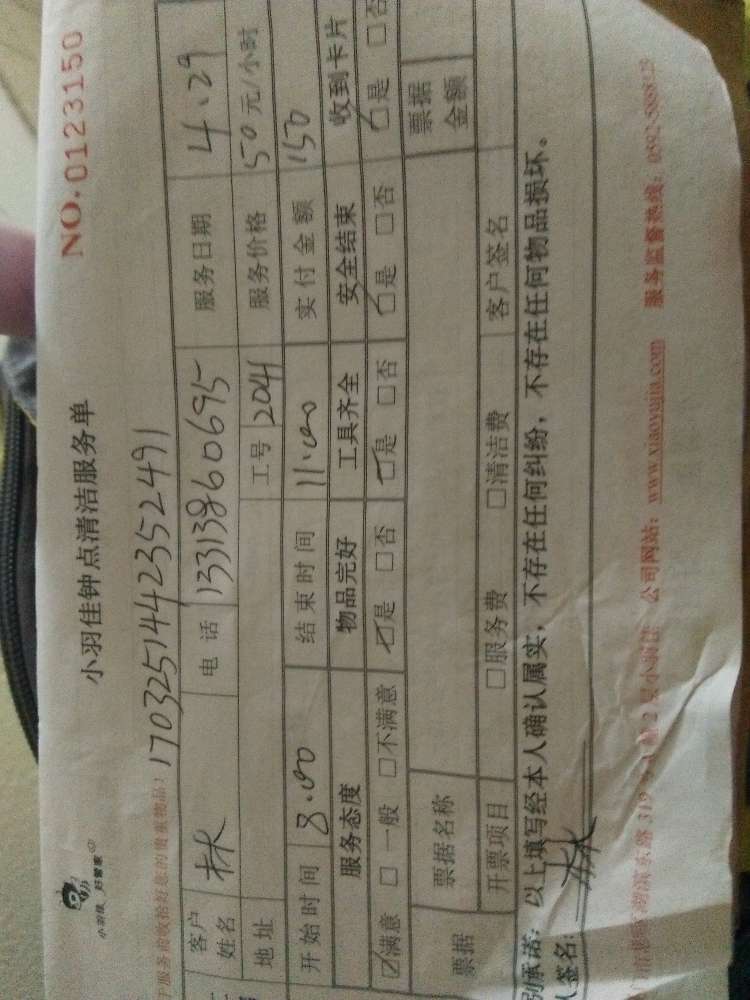 小羽佳 好管家
小羽佳钟点清洁服务单
NO.0123150
服务前收拾好您的贵重物品!
17032514423522491
客户姓名 林 电话 13313860695 服务日期 4.29
地址 工号 2041 服务价格 50元/小时
开始时间 8.00 结束时间 11.00 实付金额 150
服务态度 物品完好 工具齐全 安全结束 收到卡片
☑满意 □一般 □不满意 ☑是 □否 ☑是 □否 ☑是 □否 ☑是 □否
票据 票据名称 票据金额
开票项目 □服务费 □清洁费 客户签名
别承诺:以上填写经本人确认属实,不存在任何纠纷,不存在任何物品损坏。
人签名: 林
2层小羽佳 公司网站:www.xiaoyujia.com 服务监督热线: